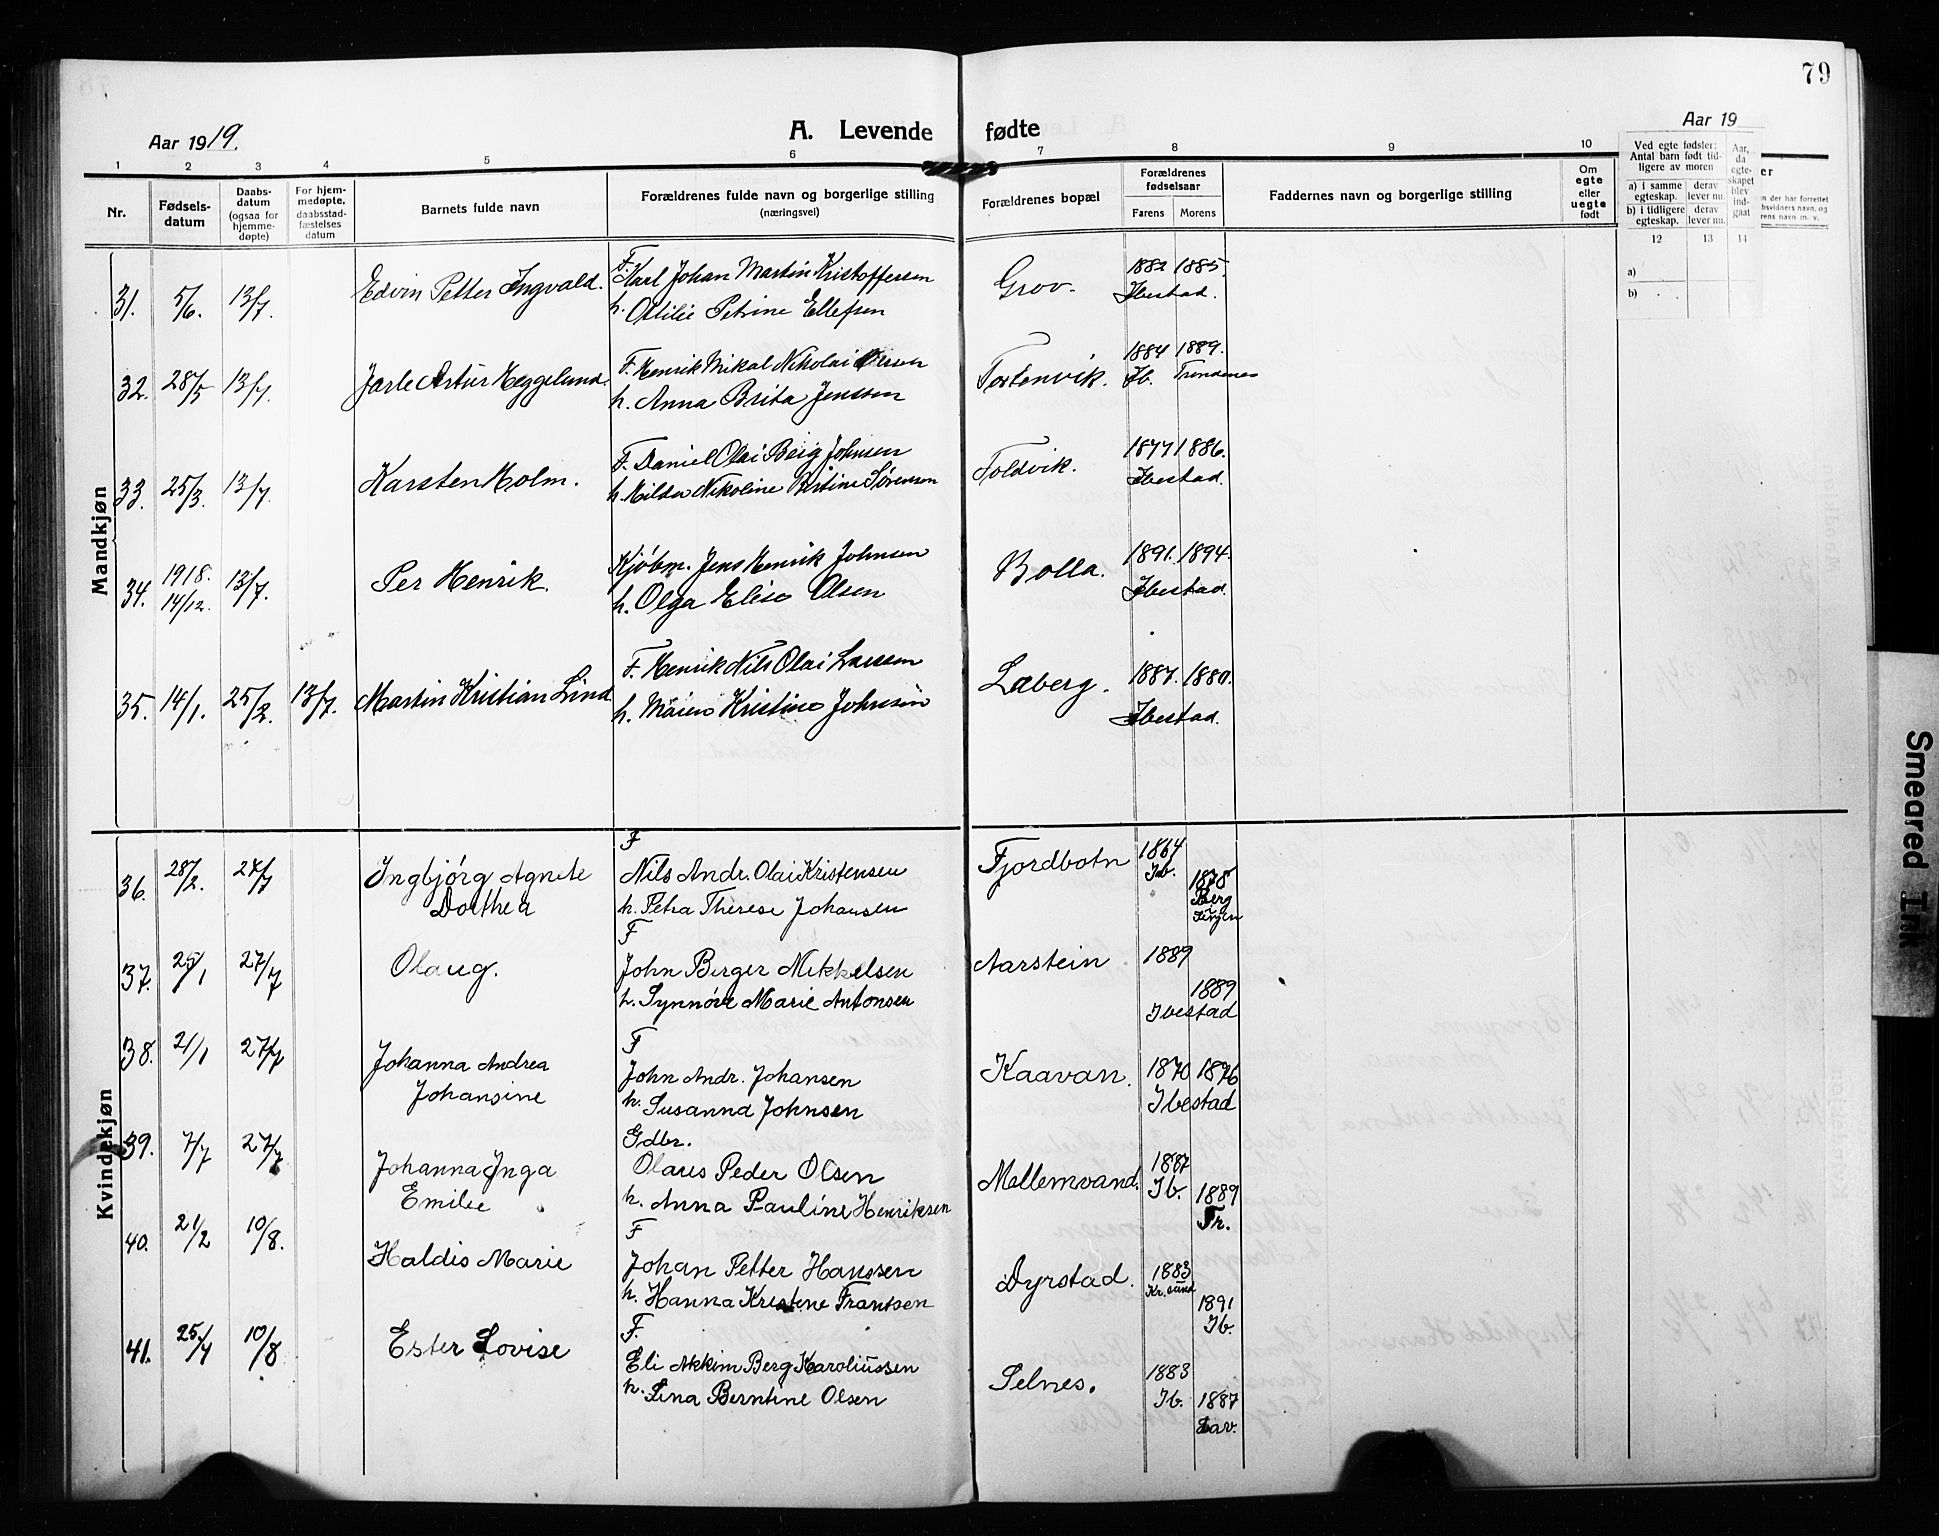 79
Aar 1919.
A. Levende fødte
Aar 19
1 2 3 4 5 6 7 8 9 10
Nr.
Fødsels-
datum
Daabs-
datum
(ogsaa for
hjemme-
døpte)
For hjem-
medøpte,
daabsstad-
fæstelses
datum
Barnets fulde navn
Forældrenes fulde navn og borgerlige stilling
(næringsvei)
Forældrenes bopæl
Forældrenes
fødselsaar
Farens Morens
Faddernes navn og borgerlige stilling
Om
egte
eller
uegte
født
Ved egte fødsler:
Antal barn født tid-
ligere av moren
a) i samme
egteskap.
derav
lever nu.
b) i tidligere
egteskap.
derav
lever nu.
Aar,
da
egte-
skapet
blev
ind-
gaat
12 13 14
a)
b)
er
n der har forrettet
bsvidners navn, og
rens navn m. v.
Mandkjøn
31. 5/6. 13/7. Edvin Petter Ingvald.
F. Karl Johan Martin Kristoffersen
h. Ottilie Petrine Ellefsen
Grov. 1882 1885.
Ibestad.
32. 28/5 13/7. Jarle Artur Heggelund.
F. Henrik Mikal Nikolai Olsen
h. Anna Brita Jenssen
Tortenvik. 1884 1889.
Ib. Trondenes
33. 25/3. 13/7. Karsten Holm.
F. Daniel Olai Berg Johnsen
h. Hilda Nikoline Bertine Sørensen
Foldvik. 1877 1886.
Ibestad.
34. 1918. 14/12. 13/7. Per Henrik.
Kjøbm. Jens Henrik Johnsen
h. Olga Elise Olsen
Bolla. 1891. 1894.
Ibestad.
35. 14/1. 25/2. 13/7. Martin Kristian Lind
F. Henrik Nils Olai Larssen
h. Maien Kristine Johnsen
Laberg. 1887. 1880.
Ibestad.
Kvindekjøn
36. 28/2. 27/7 Ingbjørg Agnete
Dorthea
F
Nils Andr. Olai Kristensen
h. Petra Therese Johansen
Fjordbotn 1864
Ib.
1878
Berg
37. 25/1 27/7 Olaug.
F
John Berger Mikkelsen
h. Synnøve Marie Antonsen
Aarstein 1889
1889
Ibestad
38. 2/1 27/7 Johanna Andrea
Johansine
F
John Andr. Johansen
h. Susanna Johnsen
Kaavan. 1870 1876
Ibestad
39. 7/7 27/7 Johanna Inga
Emilie
Gdbr.
Olaus Peder Olsen
h. Anna Pauline Henriksen
Mellemvand. 1887
Ib. 1889
Tr.
40. 21/2 10/8. Haldis Marie
F
Johan Petter Hanssen
h. Hanna Kristine Frantsen
Dyrstad. 1883
Kr.sund
1891
Ib.
41. 25/4 10/8 Ester Lovise
F.
Eli Akkim Berg Karoliussen
h. Lina Berntine Olsen
Selnes. 1883
Ib. 1887
Lav.
Smeared Ink